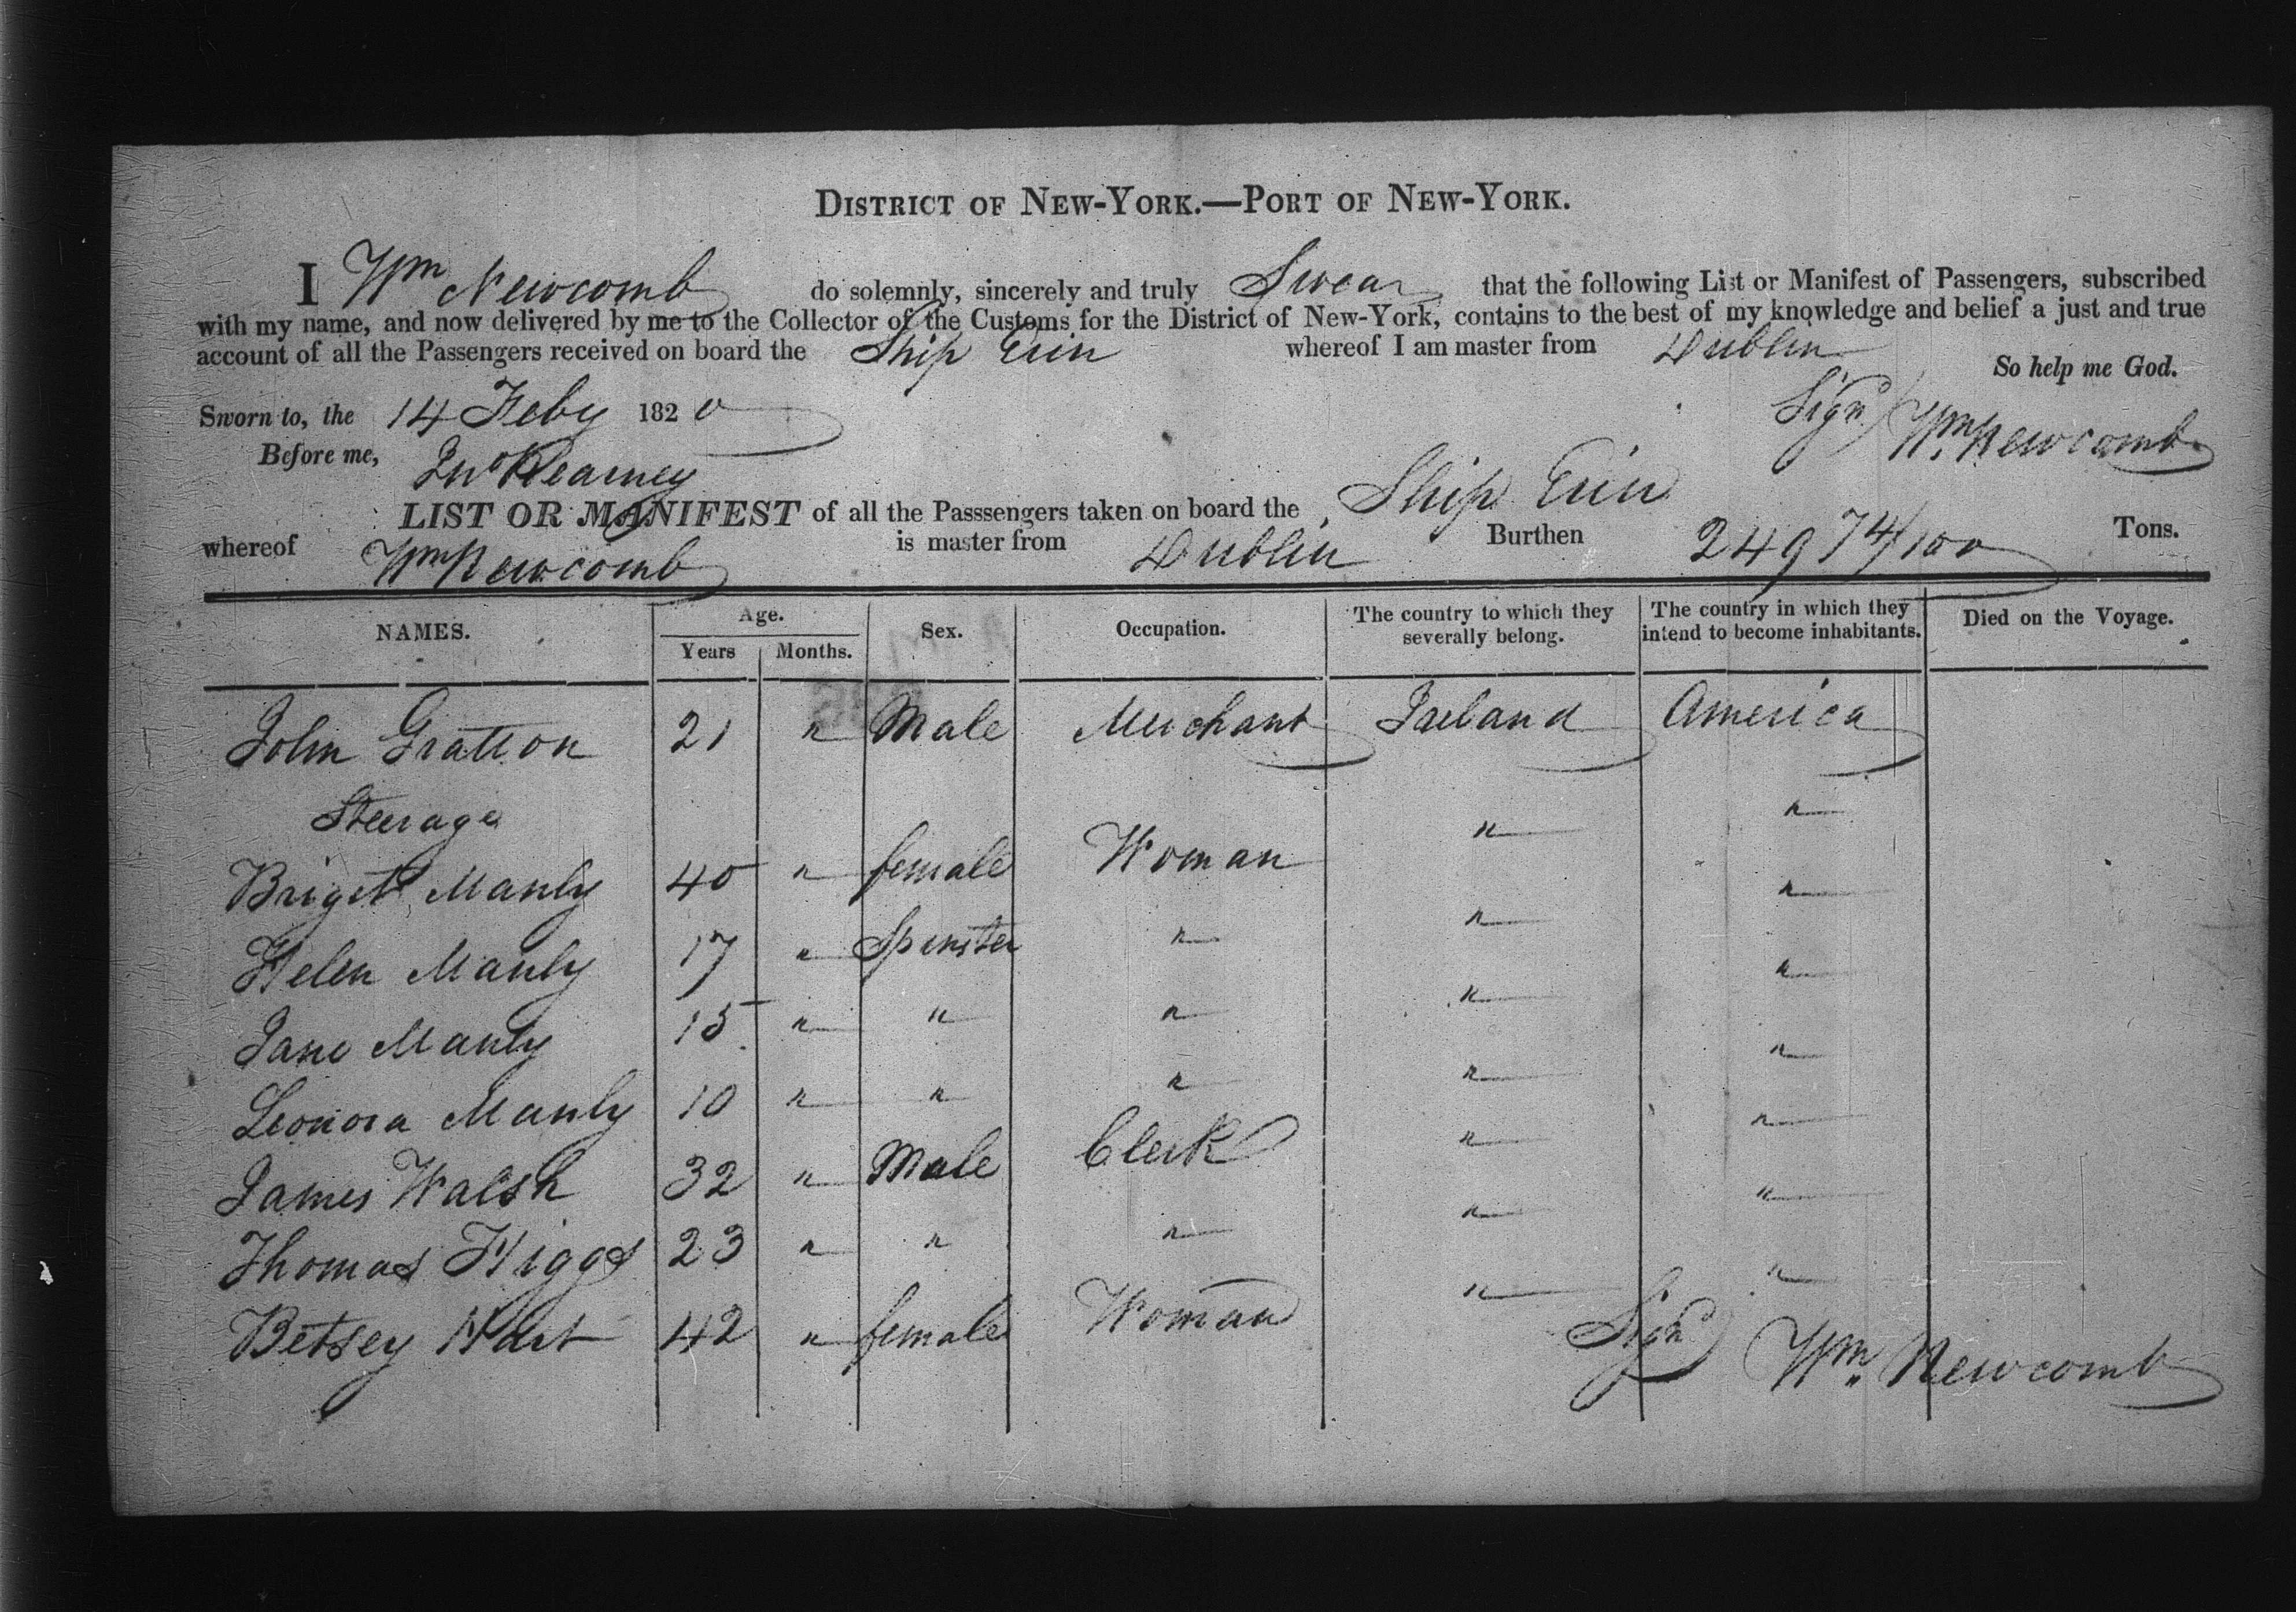 DISTRICT OF NEW-YORK.—PORT OF NEW-YORK.
I Wm Newcomb do solemnly, sincerely and truly Swear that the following List or Manifest of Passengers, subscribed
with my name, and now delivered by me to the Collector of the Customs for the District of New-York, contains to the best of my knowledge and belief a just and true
account of all the Passengers received on board the Ship Erin whereof I am master from Dublin
So help me God.
Sworn to, the 14 Feby 1820
Signd Wm Newcomb
Before me, Jno Kearney
LIST OR MANIFEST of all the Passsengers taken on board the Ship Erin
whereof Wm Newcomb is master from Dublin Burthen 249 74/100 Tons.
NAMES. Age. Years Months. Sex. Occupation. The country to which they severally belong. The country in which they intend to become inhabitants. Died on the Voyage.
John Gratton 21 " Male Merchant Ireland America
Steerage " "
Briget Manly 40 " female Woman " "
Helen Manly 17 " Spinster " " "
Jane Manly 15 " " " " "
Leonora Manly 10 " " " " "
James Walsh 32 " Male Clerk " "
Thomas Higgs 23 " " " " "
Betsey Hart 42 " female Woman
Signd Wm Newcomb